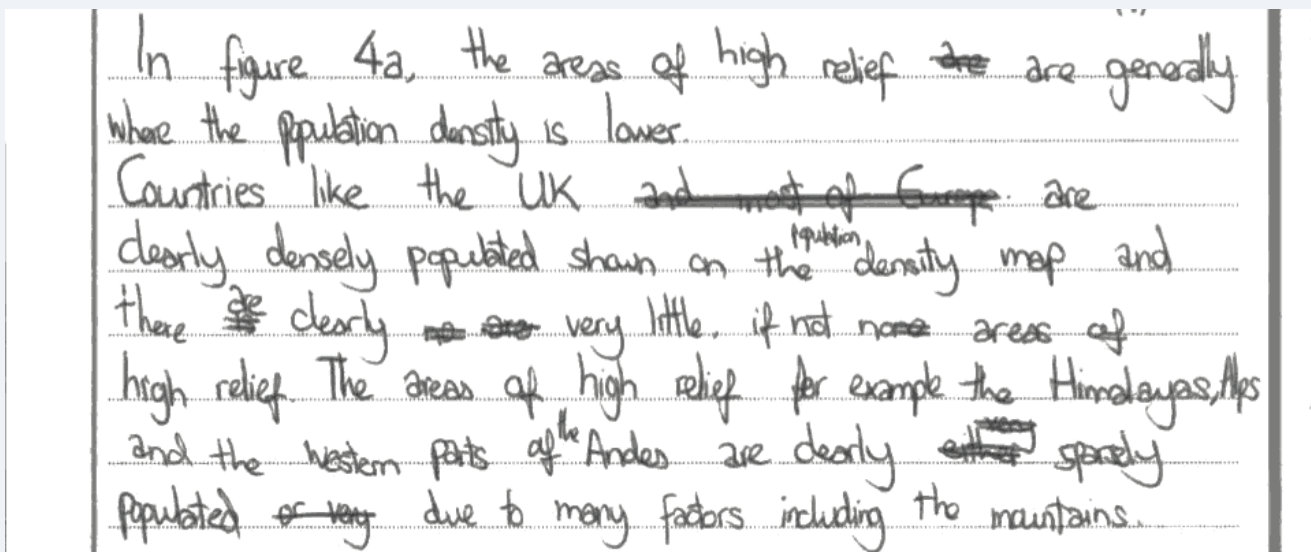 In figure 4a, the areas of high relief are are generally
where the population density is lower.
Countries like the UK and most of Europe. are
clearly densely populated shown on the population density map and
there are clearly no are very little, if not none areas of
high relief. The areas of high relief for example the Himalayas, Alps
and the western parts of the Andes are clearly either very sparsely
populated or very due to many factors including the mountains.